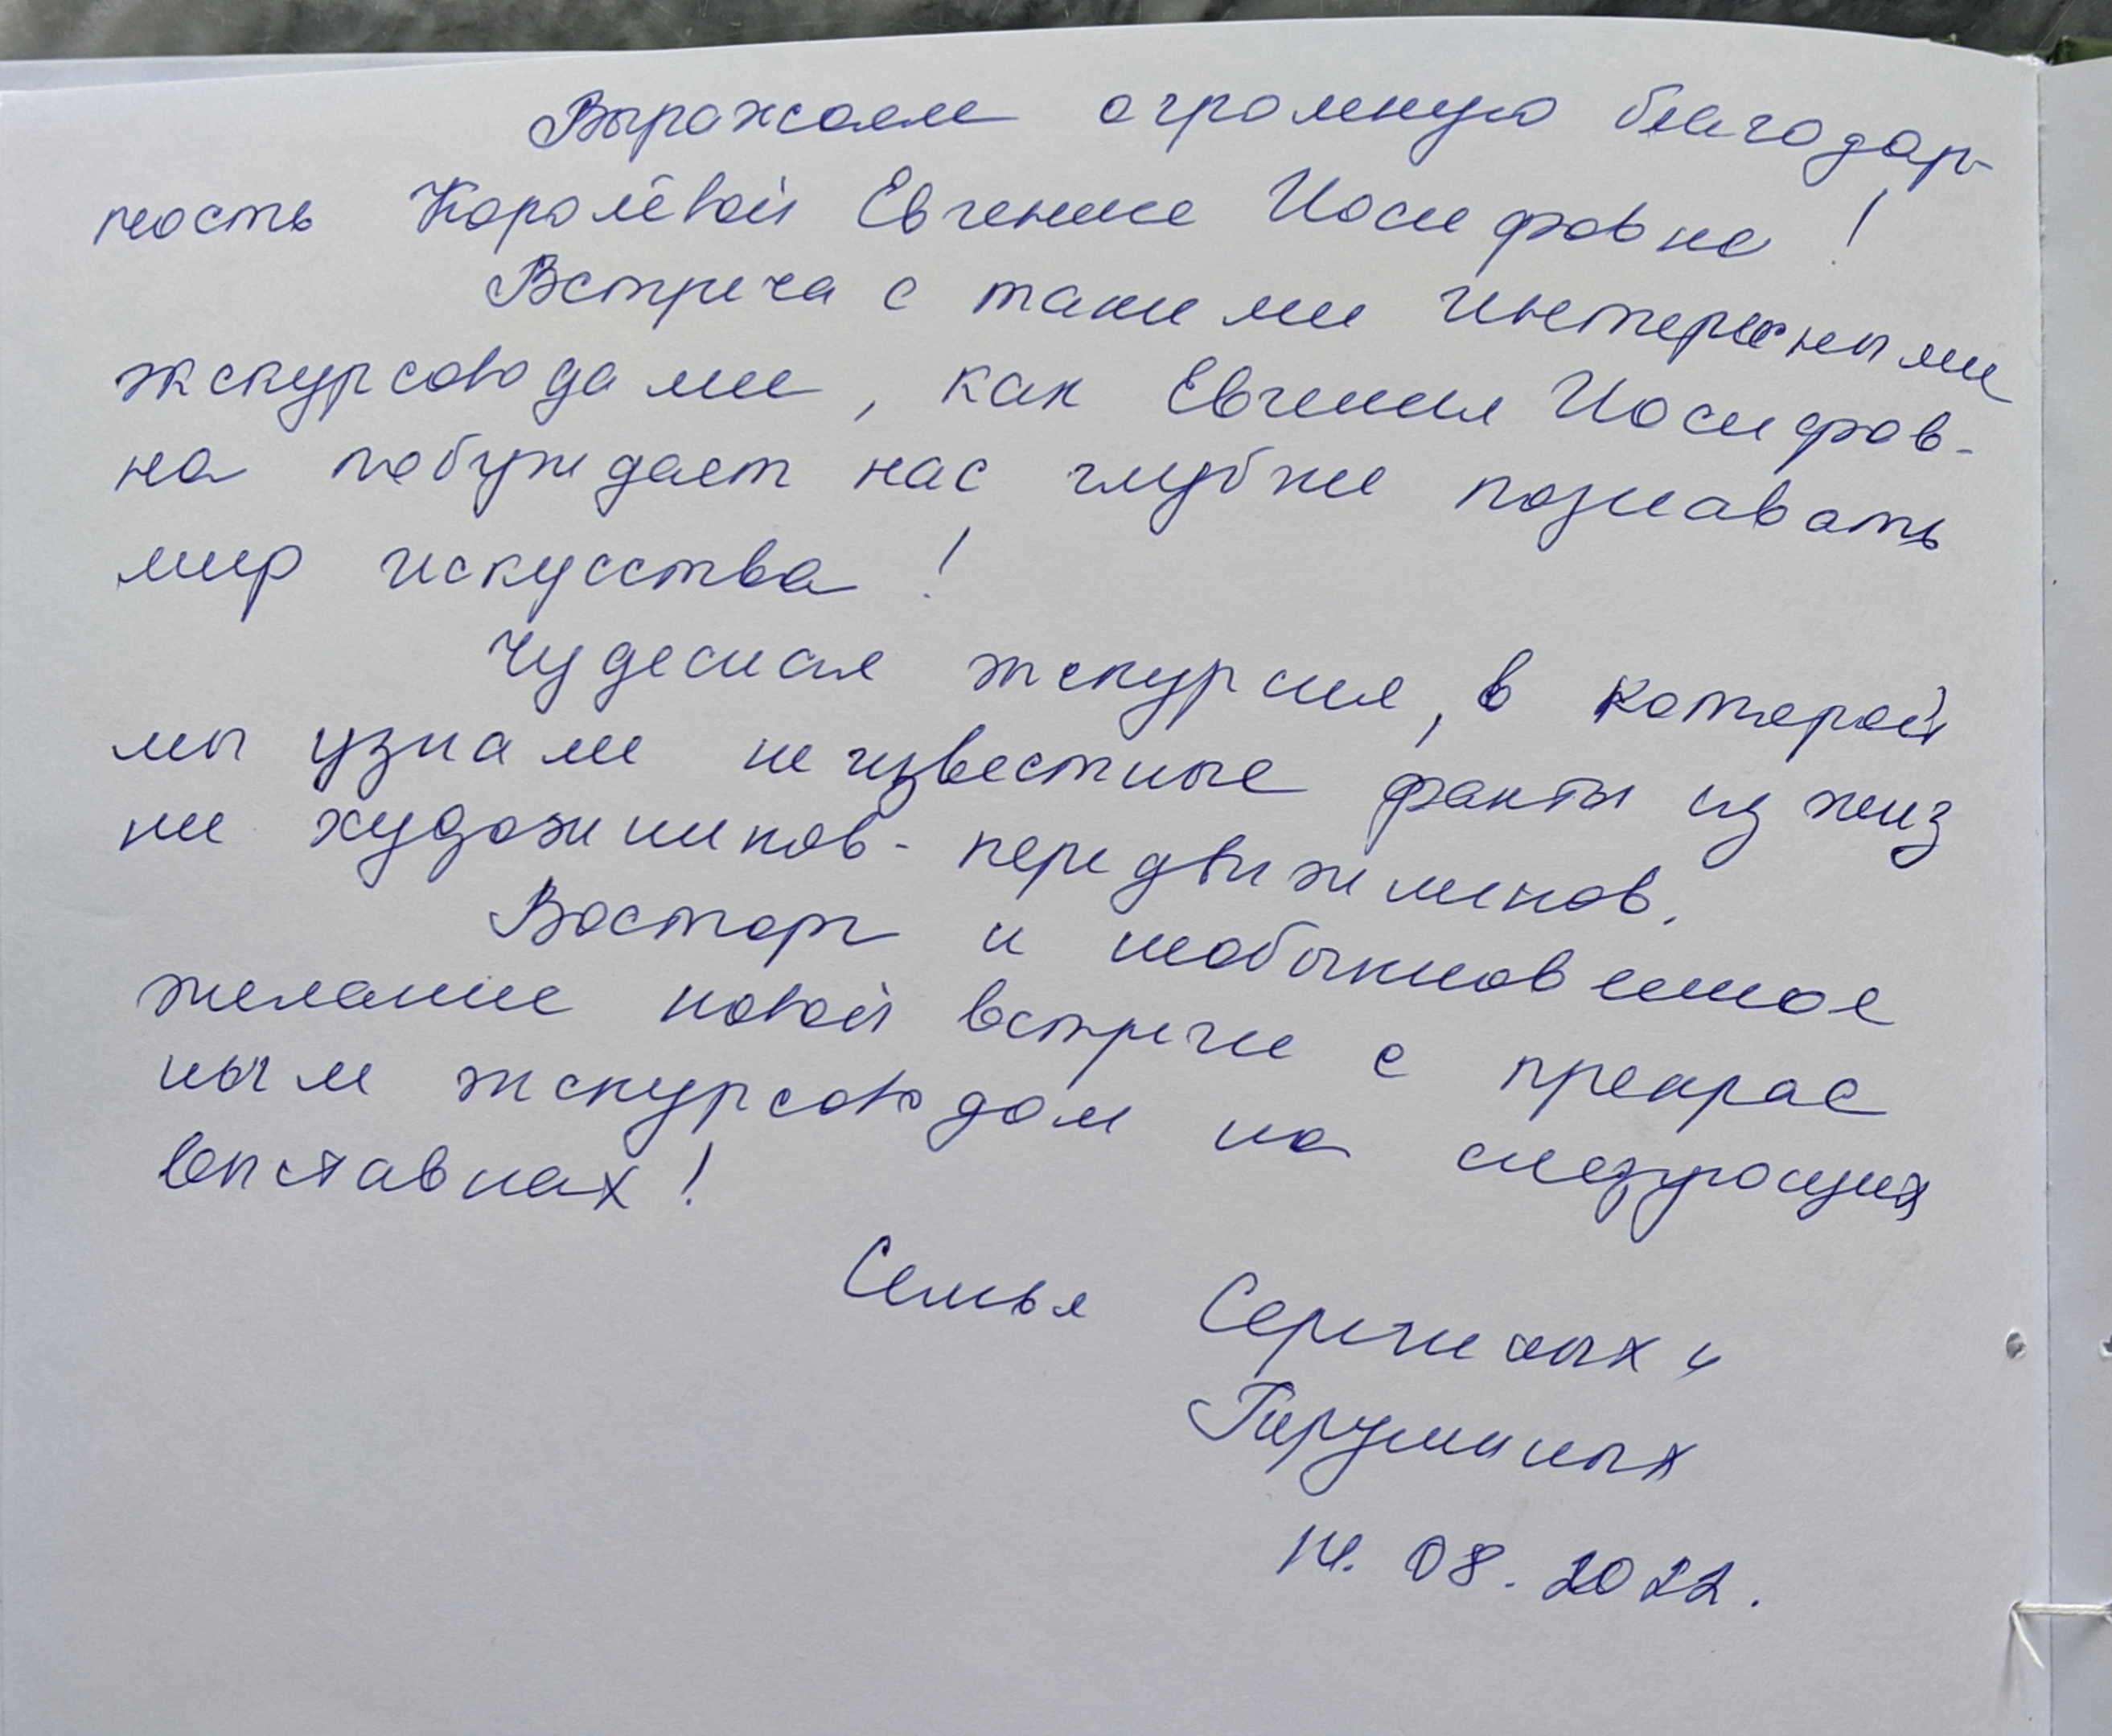 Выражаем огромную благодар-
ность Королёвой Евгение Иосифовне!
Встреча с такими интересными
экскурсоводами, как Евгения Иосифов-
на побуждает нас глубже познавать
мир искусства!
Чудесная экскурсия, в которой
мы узнали неизвестные факты из жиз
ни художников-передвижников.
Восторг и необыкновенное
желание новой встречи с прекрас
ным экскурсоводом на следующих
выставках!
Семья Сергиных и
14.08.2022.